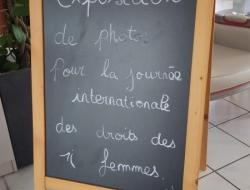 Exposition
de photo
pour la journée
internationale
des droits des
femmes.